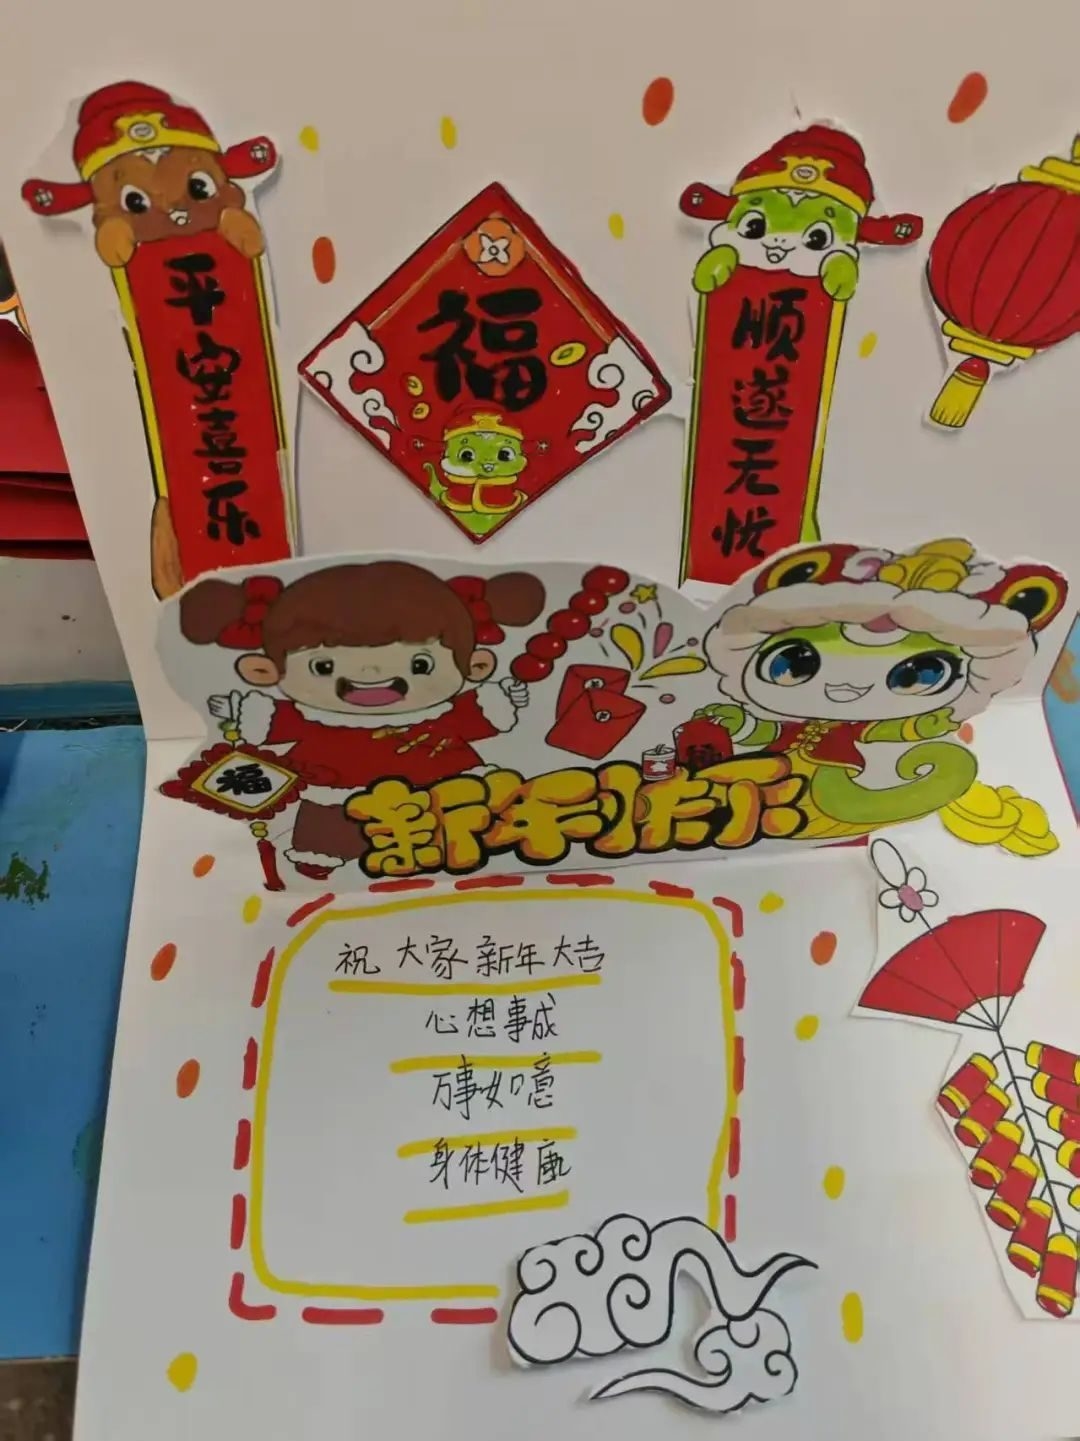 平安喜乐
福
顺遂无忧
福
福
新年快乐
祝大家新年大吉
心想事成
万事如意
身体健康